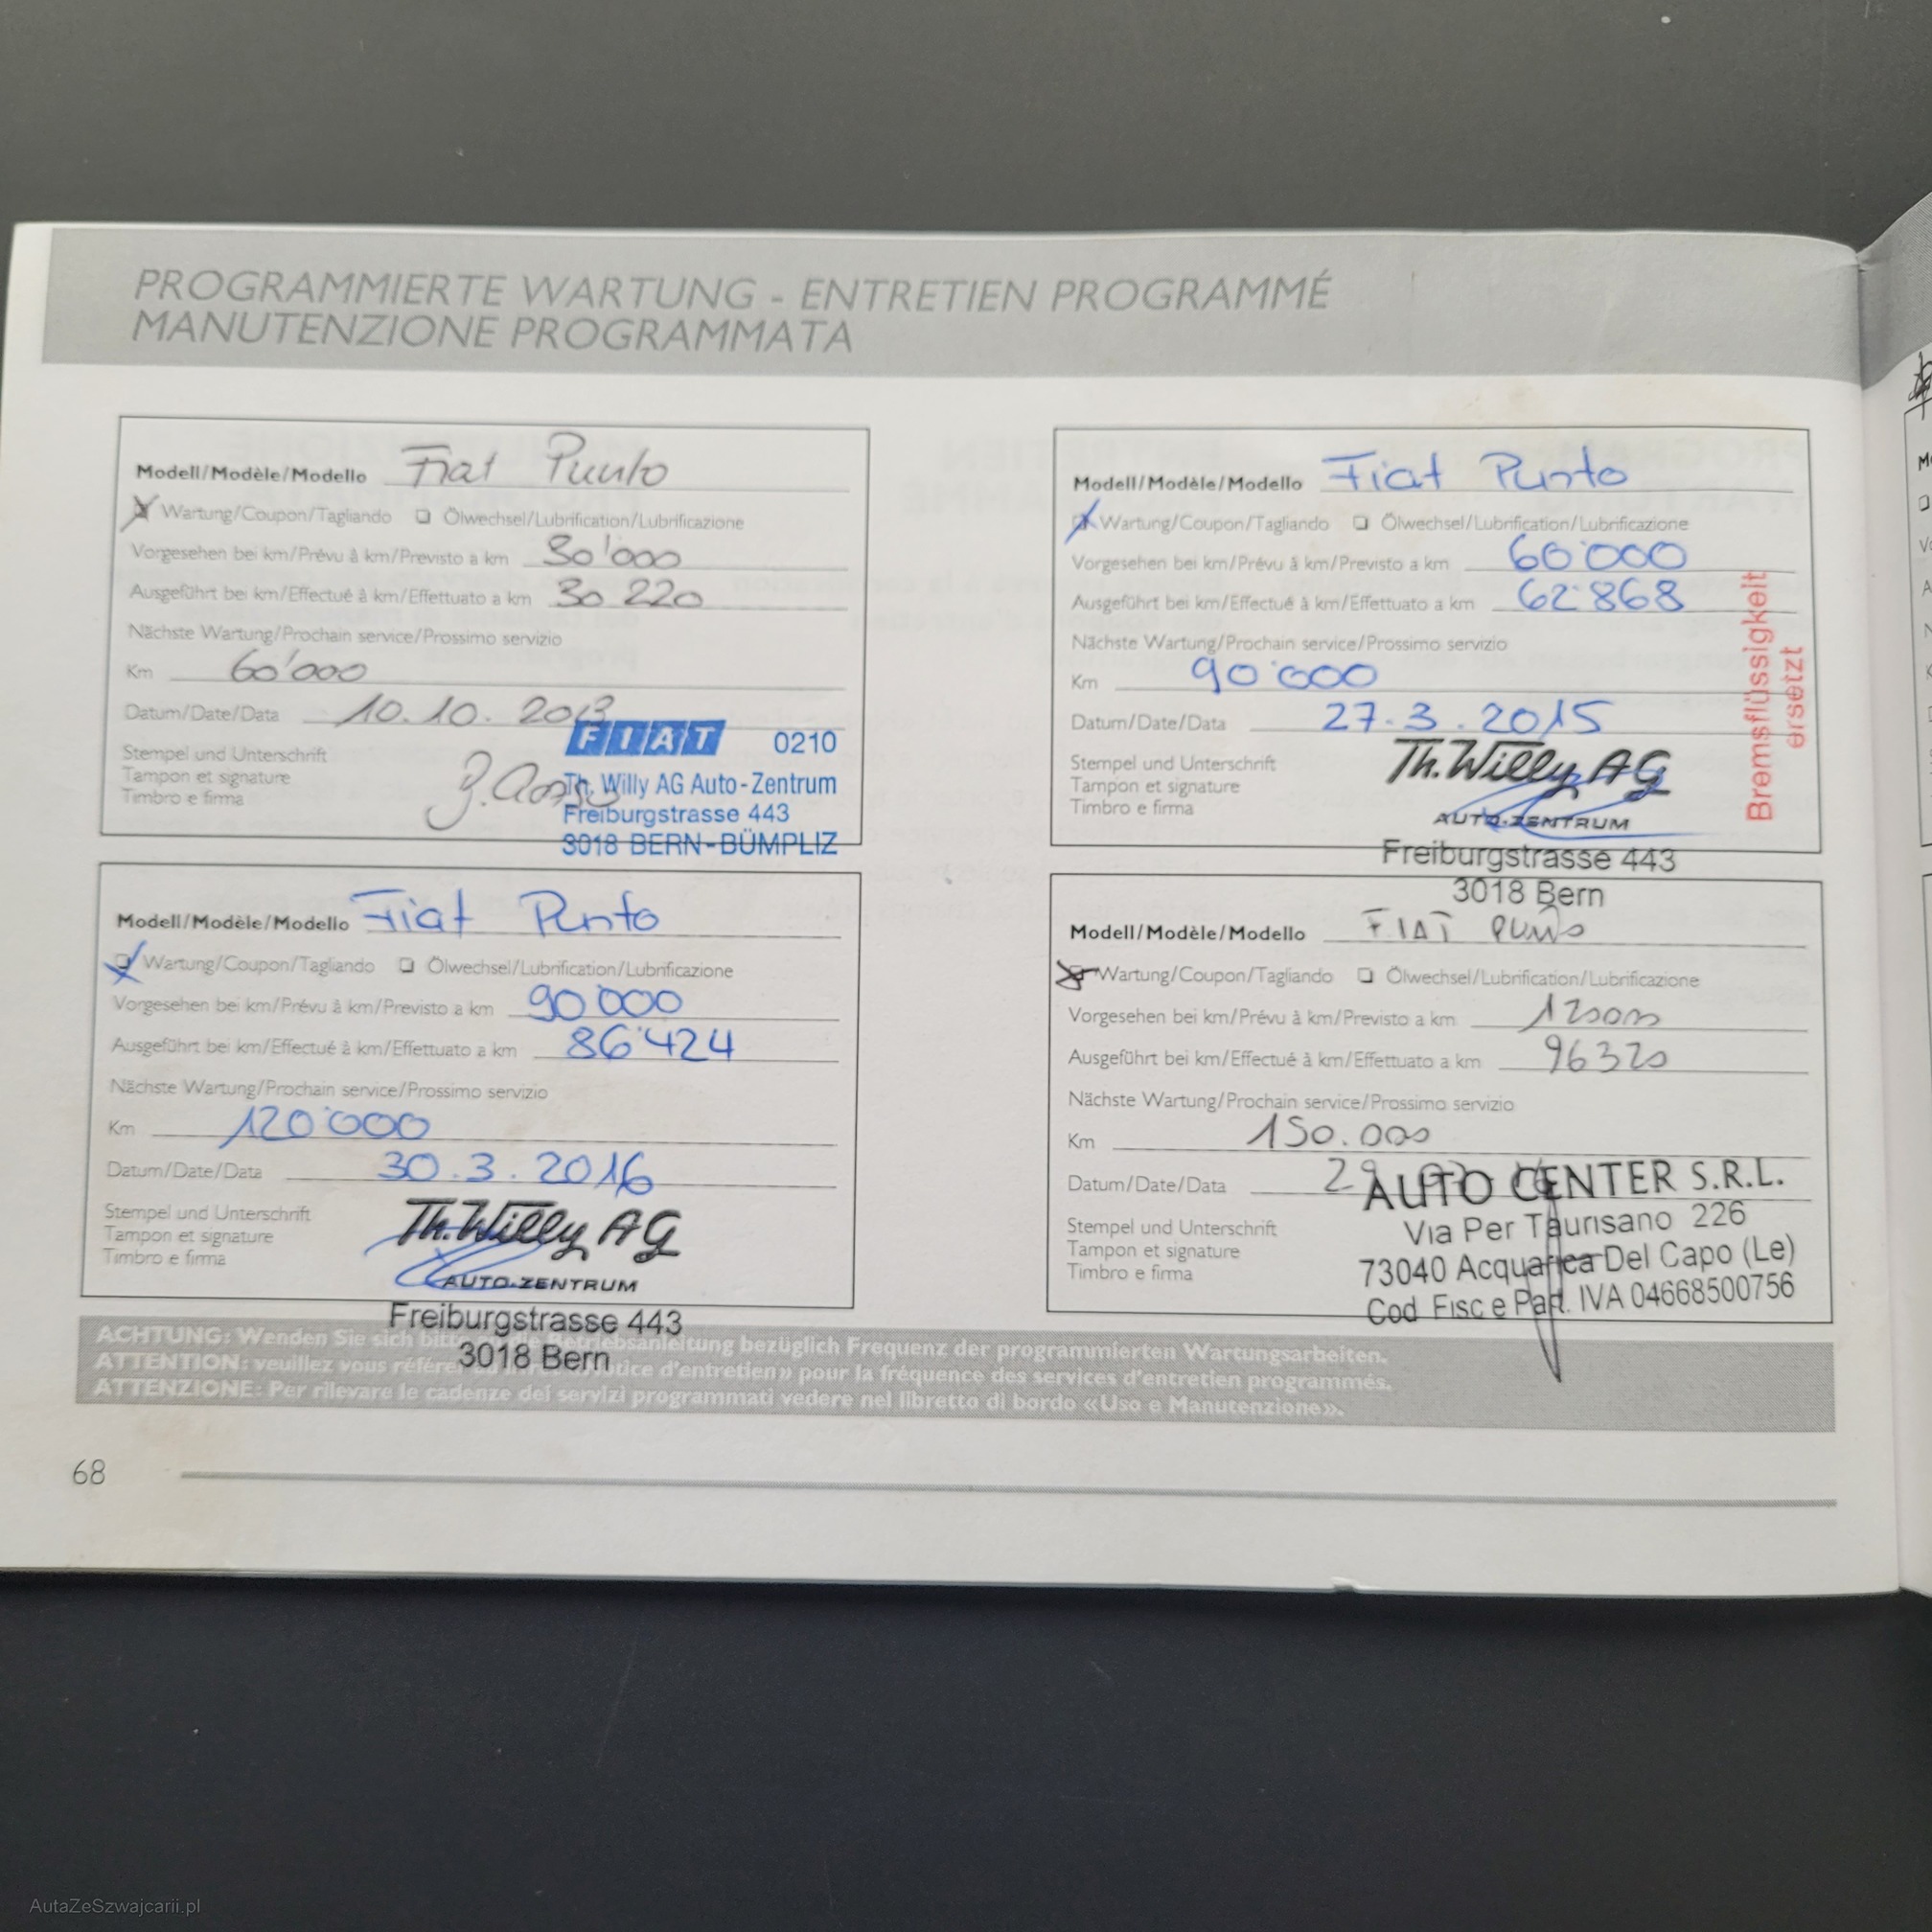 PROGRAMMIERTE WARTUNG - ENTRETIEN PROGRAMMÉ
MANUTENZIONE PROGRAMMATA
Modell/Modèle/Modello Fiat Punto
Wartung/Coupon/Tagliando Ölwechsel/Lubrification/Lubrificazione
Vorgesehen bei km/Prévu à km/Previsto a km 30'000
Ausgeführt bei km/Effectué à km/Effettuato a km 30 220
Nächste Wartung/Prochain service/Prossimo servizio
Km 60'000
Datum/Date/Data 10.10.2013
Stempel und Unterschrift
Tampon et signature
Timbro e firma
FIAT 0210
Th. Willy AG Auto-Zentrum
Freiburgstrasse 443
3018 BERN-BÜMPLIZ
Modell/Modèle/Modello Fiat Punto
Wartung/Coupon/Tagliando Ölwechsel/Lubrification/Lubrificazione
Vorgesehen bei km/Prévu à km/Previsto a km 60'000
Ausgeführt bei km/Effectué à km/Effettuato a km 62'868
Nächste Wartung/Prochain service/Prossimo servizio
Km 90'000
Datum/Date/Data 27.3.2015
Stempel und Unterschrift
Tampon et signature
Timbro e firma
Th. Willy AG
AUTO-ZENTRUM
Freiburgstrasse 443
3018 Bern
Bremsflüssigkeit
ersetzt
Modell/Modèle/Modello Fiat Punto
Wartung/Coupon/Tagliando Ölwechsel/Lubrification/Lubrificazione
Vorgesehen bei km/Prévu à km/Previsto a km 90'000
Ausgeführt bei km/Effectué à km/Effettuato a km 86'424
Nächste Wartung/Prochain service/Prossimo servizio
Km 120'000
Datum/Date/Data 30.3.2016
Stempel und Unterschrift
Tampon et signature
Timbro e firma
Th. Willy AG
AUTO-ZENTRUM
Freiburgstrasse 443
3018 Bern
Modell/Modèle/Modello FIAT PUNTO
Wartung/Coupon/Tagliando Ölwechsel/Lubrification/Lubrificazione
Vorgesehen bei km/Prévu à km/Previsto a km 120000
Ausgeführt bei km/Effectué à km/Effettuato a km 96320
Nächste Wartung/Prochain service/Prossimo servizio
Km 150.000
Datum/Date/Data
Stempel und Unterschrift
Tampon et signature
Timbro e firma
AUTO CENTER S.R.L.
Via Per Taurisano 226
73040 Acquarica Del Capo (Le)
Cod Fisc e Part. IVA 04668500756
ACHTUNG: Wenden Sie sich bitte Betriebsanleitung bezüglich Frequenz der programmierten Wartungsarbeiten.
ATTENTION: veuillez vous référer d'entretien» pour la fréquence des services d'entretien programmés.
ATTENZIONE: Per rilevare le cadenze dei servizi programmati vedere nel libretto di bordo «Uso e Manutenzione».
68
AutaZeSzwajcarii.pl